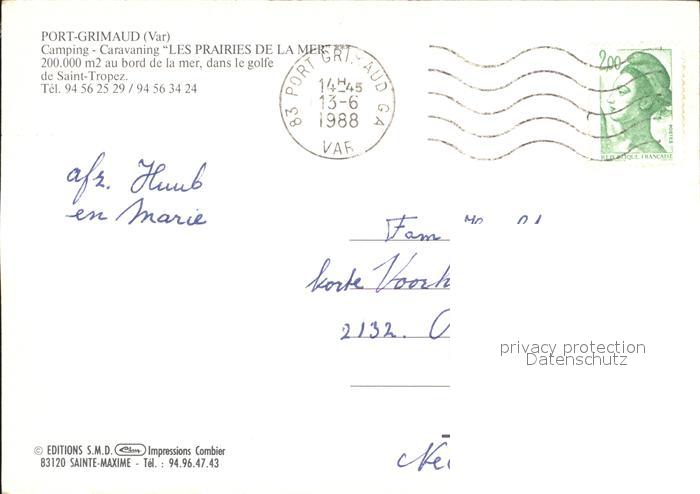 PORT-GRIMAUD (Var)
Camping - Caravaning "LES PRAIRIES DE LA MER" ***
200.000 m2 au bord de la mer, dans le golfe
de Saint-Tropez.
Tél. 94 56 25 29 / 94 56 34 24
83 PORT GRIMAUD GA
14H45
13-6
1988
VAR
2,00
POSTES
REPUBLIQUE FRANÇAISE
afz. Huub
en Marie
Fam
korte
2132.
privacy protection
Datenschutz
© EDITIONS S.M.D. Cim Impressions Combier
83120 SAINTE-MAXIME - Tél. : 94.96.47.43